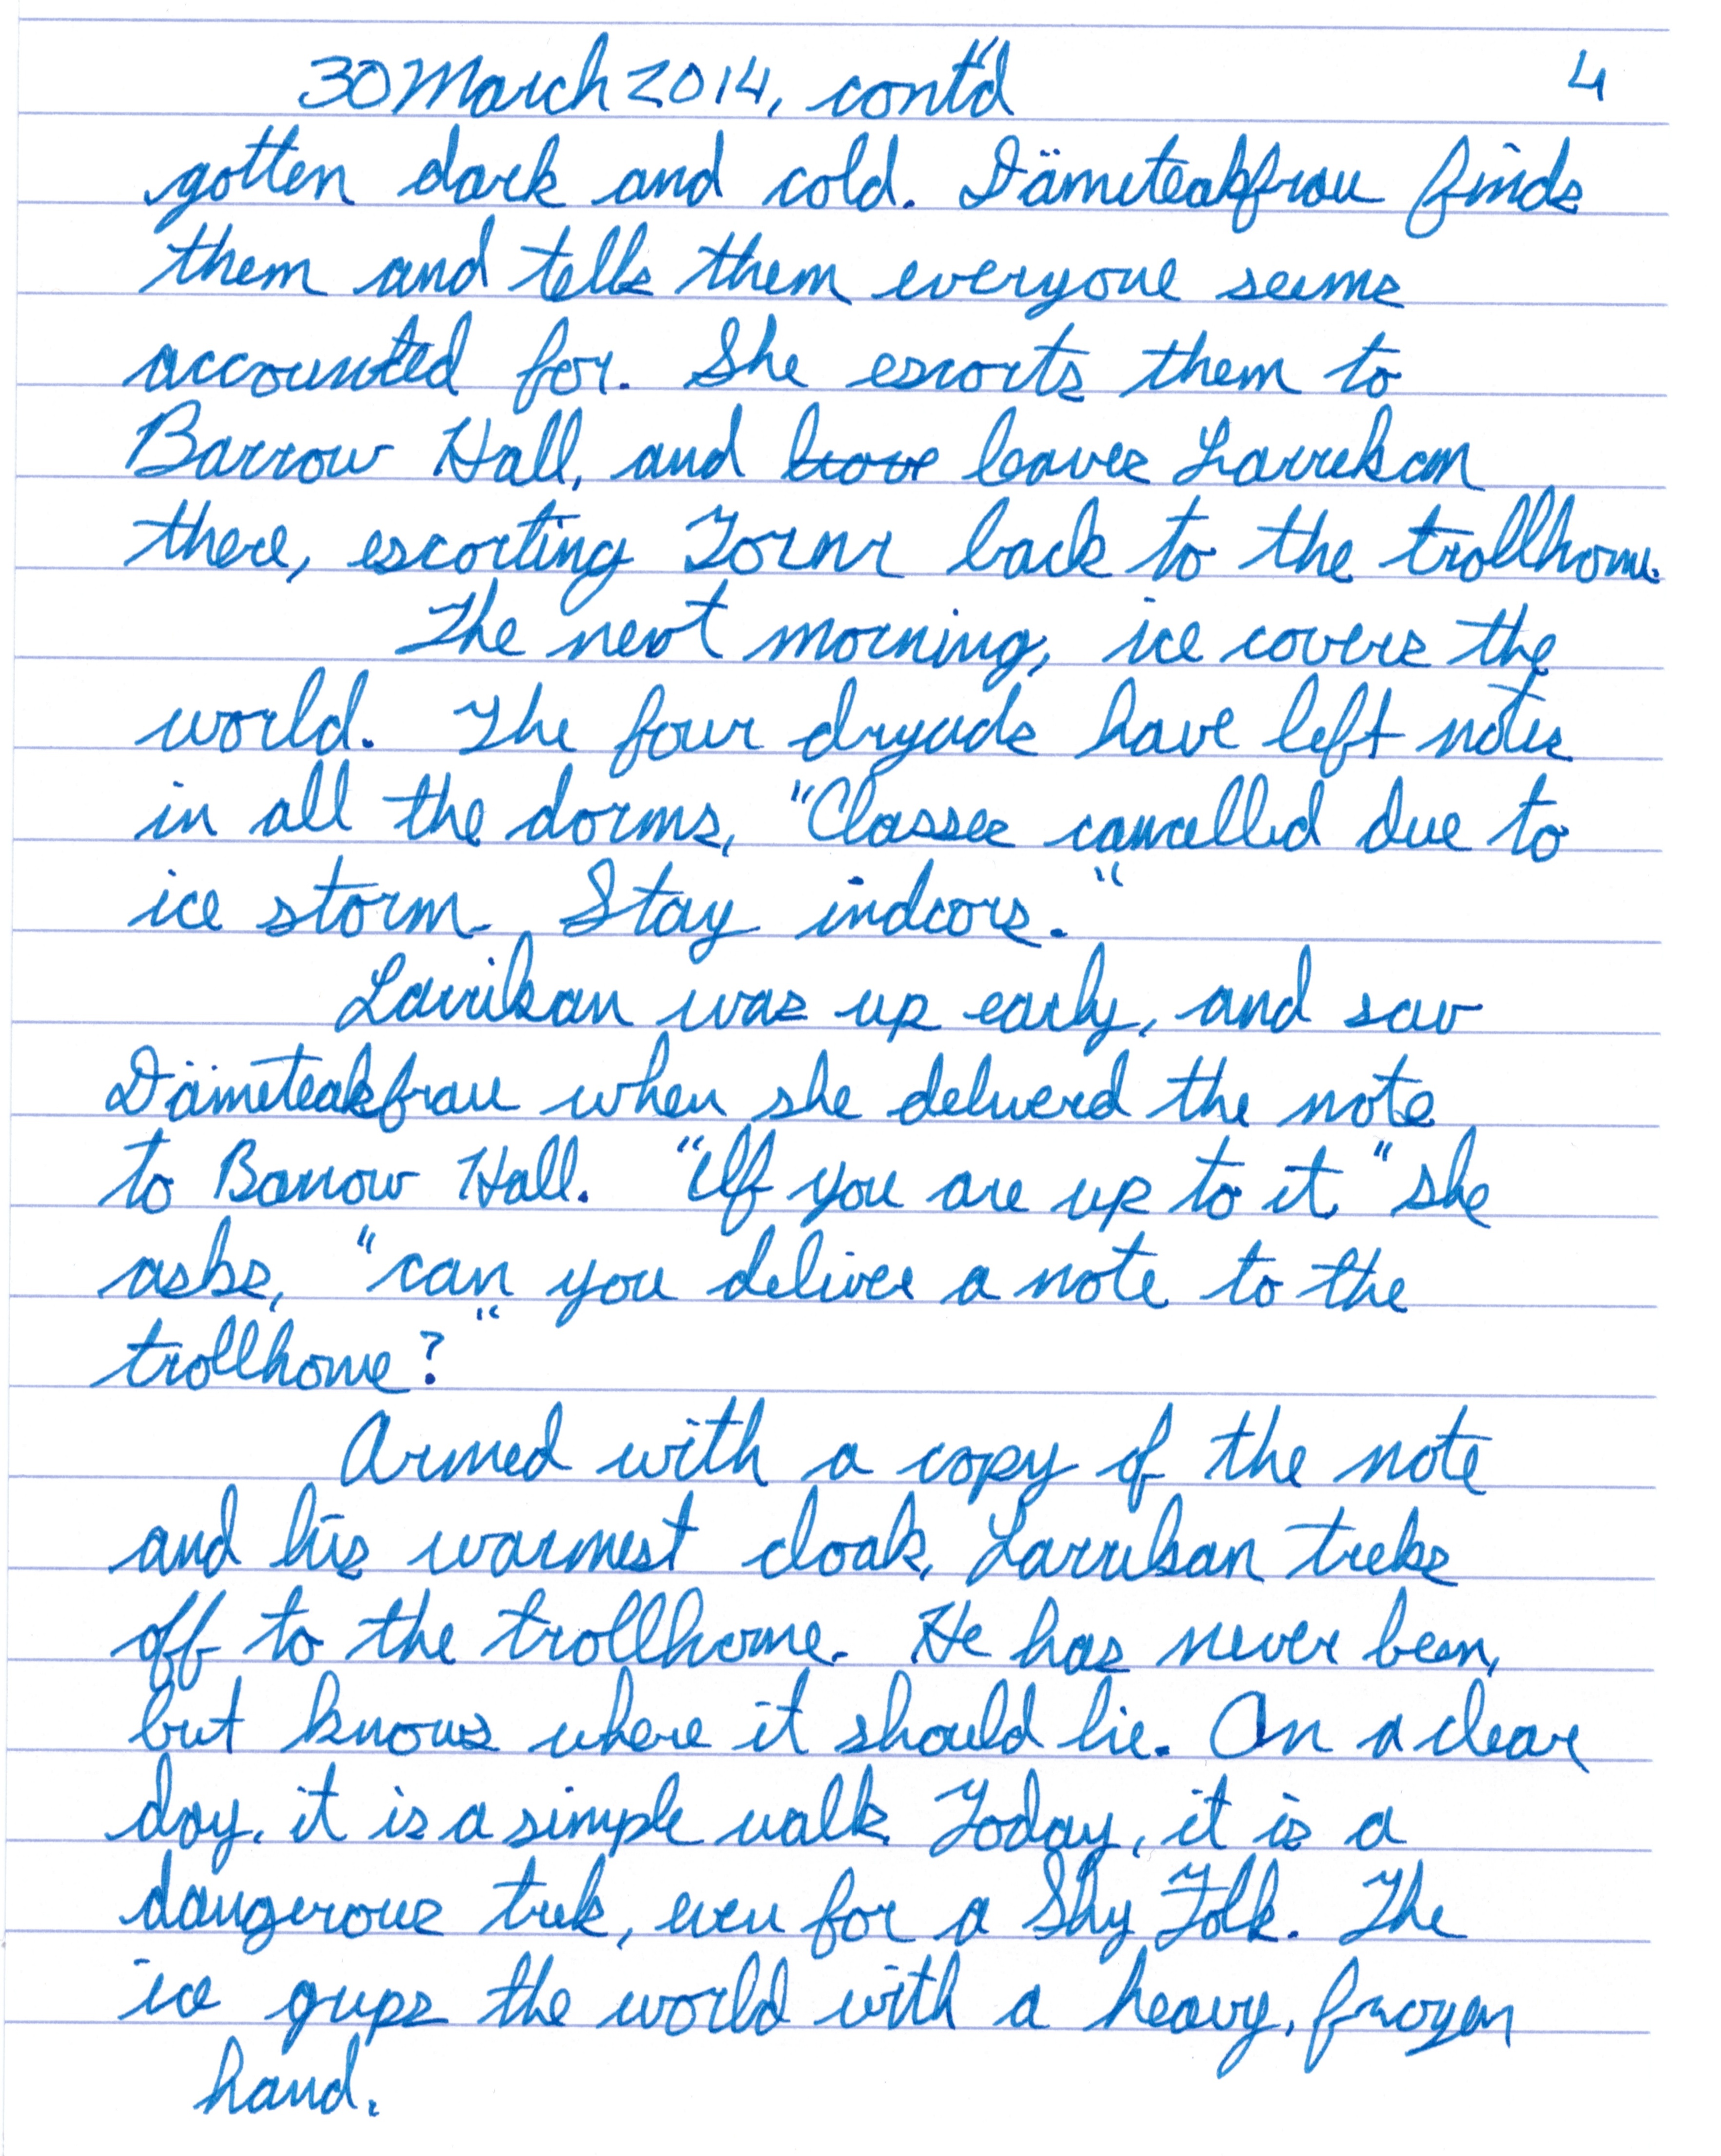 30 March 2014, cont'd 4
gotten dark and cold. Dämeteakfrau finds
them and tells them everyone seems
accounted for. She escorts them to
Barrow Hall, and leaves Larrikan
there, escorting Tornr back to the trollhome.
The next morning, ice covers the
world. The four dryads have left notes
in all the dorms, "Classes cancelled due to
ice storm. Stay indoors."
Larrikan was up early, and saw
Dämeteakfrau when she delivered the note
to Barrow Hall. "If you are up to it" she
asks, "can you deliver a note to the
trollhome?"
Armed with a copy of the note
and his warmest cloak, Larrikan treks
off to the trollhome. He has never been,
but knows where it should lie. On a clear
day, it is a simple walk. Today, it is a
dangerous trek, even for a Shy Folk. The
ice grips the world with a heavy, frozen
hand.